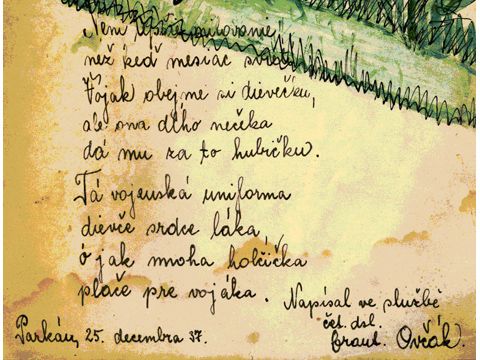 Není lepšie milovanie
než keď mesiac svieti
Vojak obejme si dievečku,
ale ona dlho nečeka
dá mu za to hubičku.
Tá vojenská uniforma
dievče srdce láka,
ó jak mnoha holčička
pláče pre vojáka.
Napísal ve službě
čet. dsl.
Ovčák.
Parkán, 25. decembra 37.